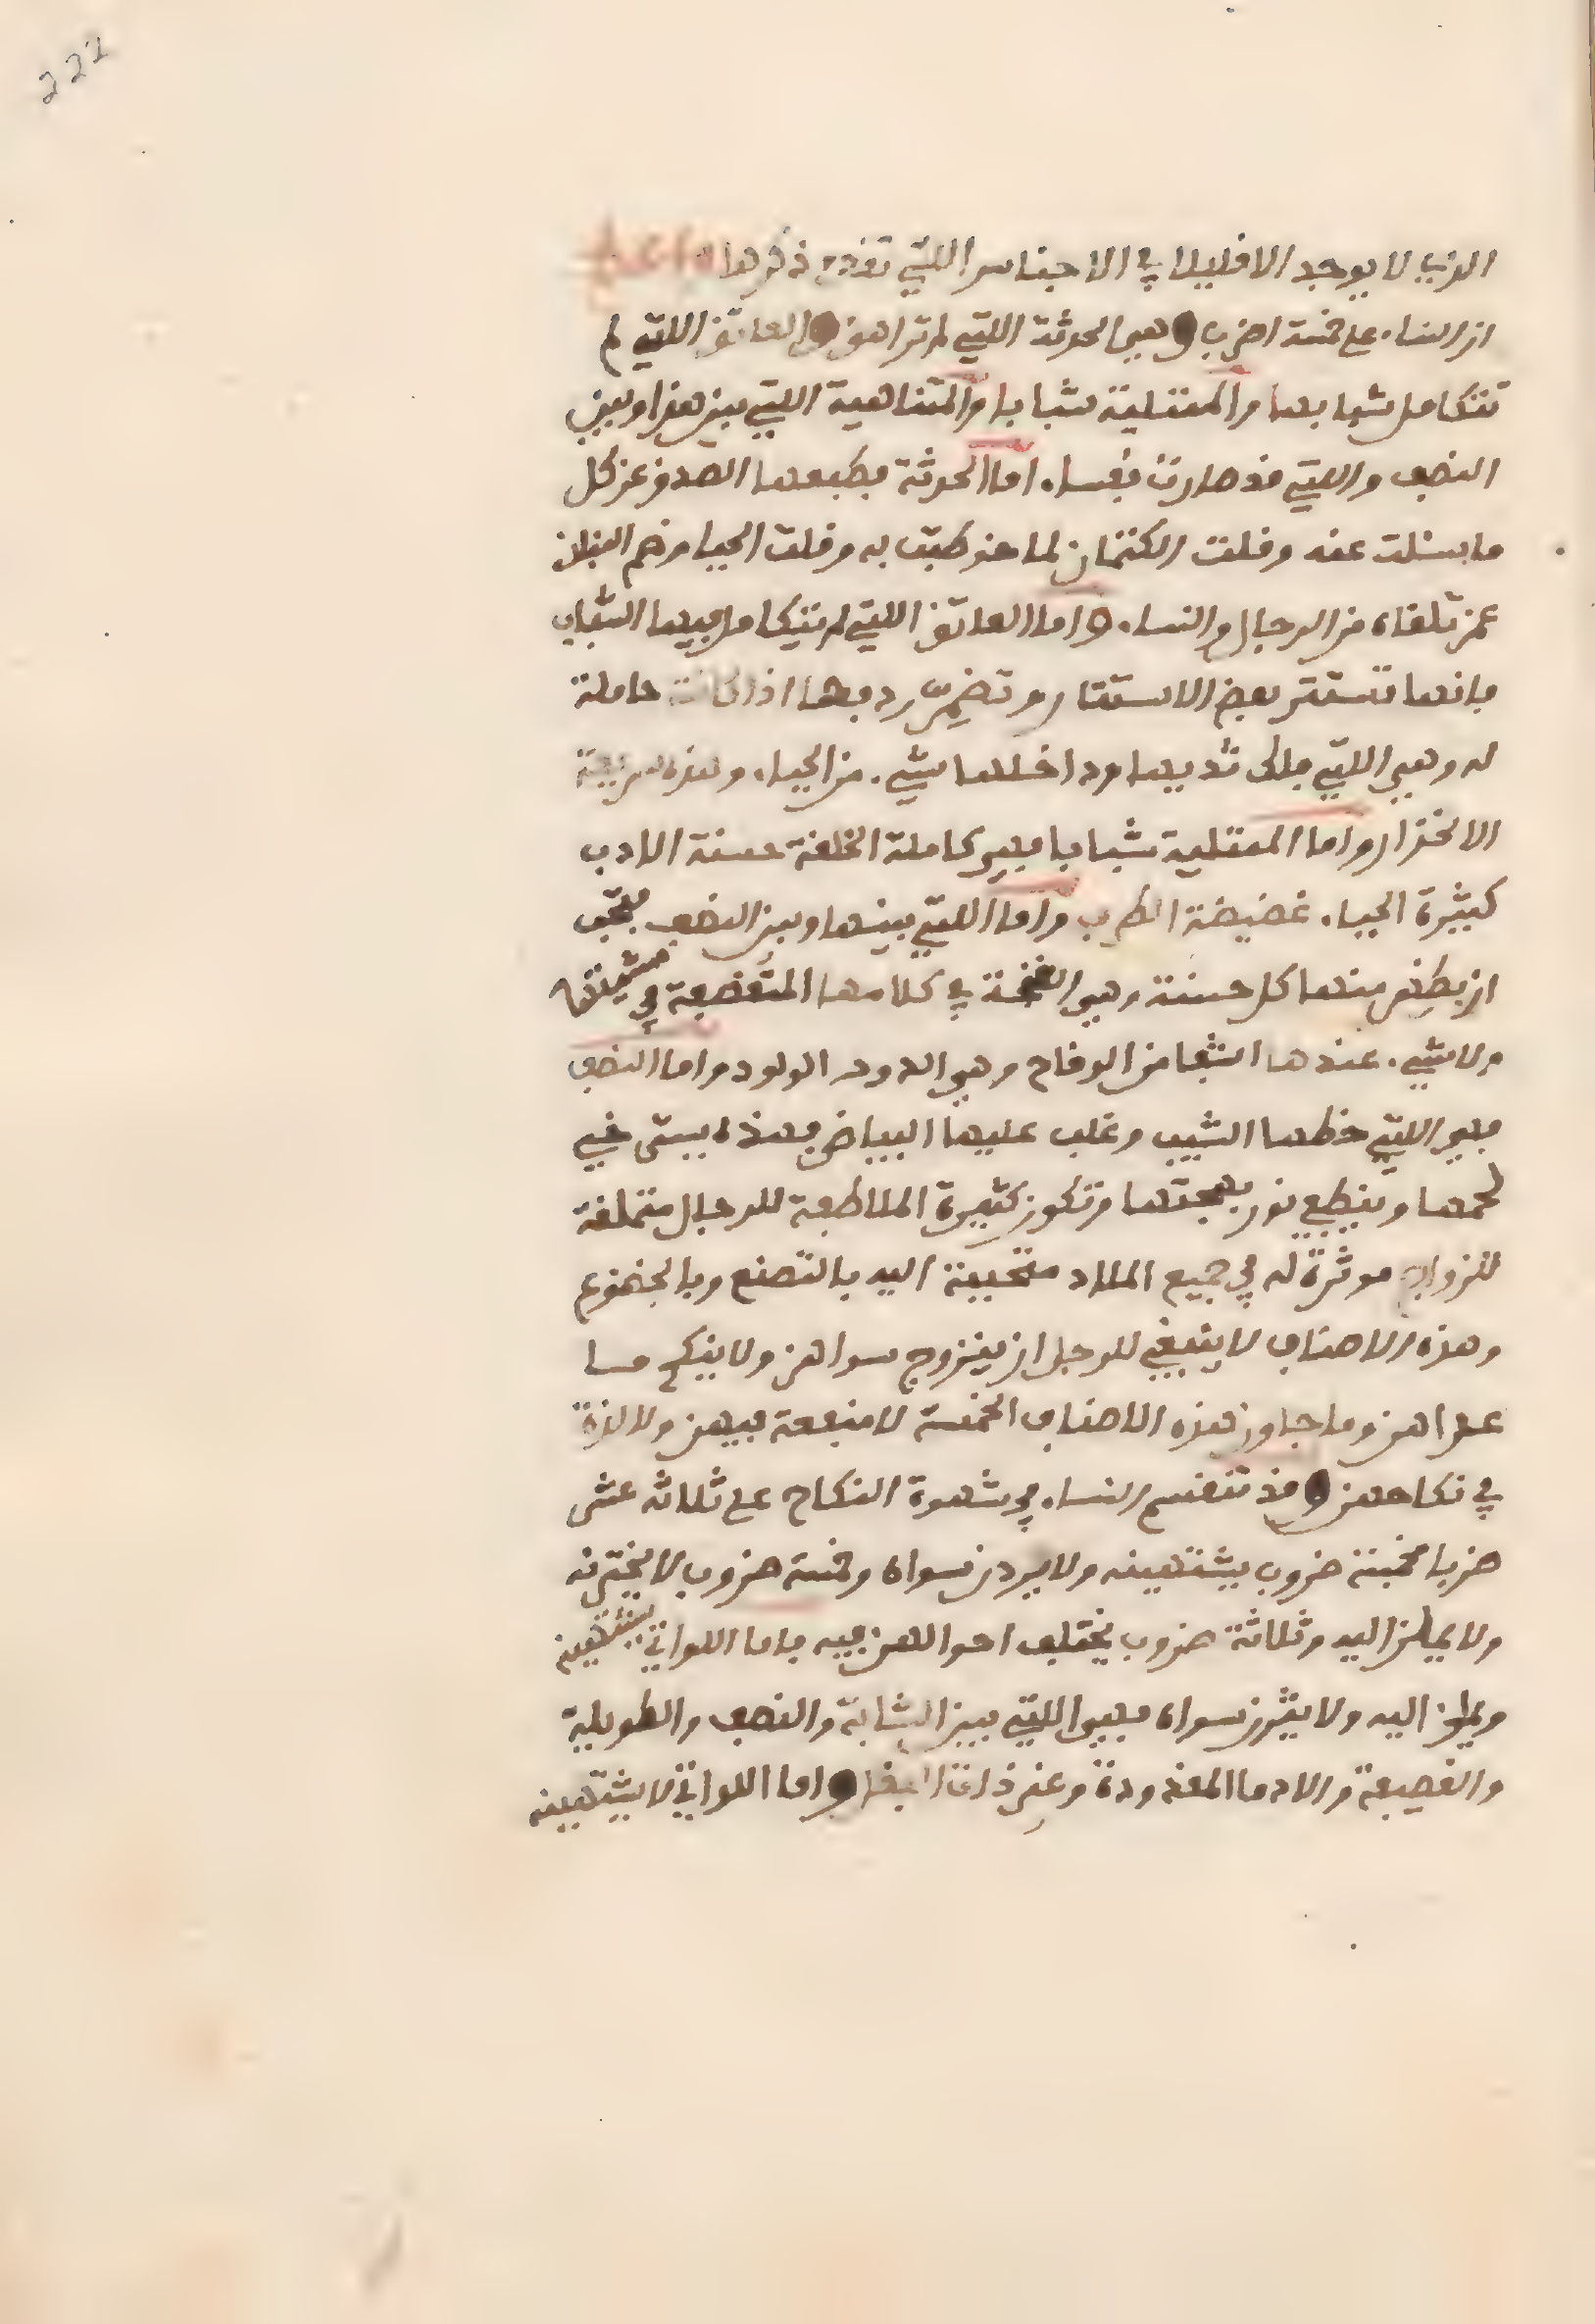 222
الذي لا يوجد الا قليلا في الاجناس اللتي تقدم ذكرها واعلم
ان النساء على خمسة اضرب وهي الحدثة اللتي لم تراهق والعاتق اللتي لم
تتكامل شبابها والممتلية شبابا والمتناهية اللتي بين هذا وبين
النصف والتي قد صارت نصفا. اما الحدثة فطبعها الصدق عن كل
ما سئلت عنه وقلت الكتمان لما خوطبت به وقلت الحيا
عمن تلقاه من الرجال والنساء. واما العاتق اللتي لم يتكامل فيها الشباب
فانها تستتر بعض الاستتار وتضمر ردفها اذا كانت حاملة
له وهي اللتي فلك ثديها وداخلها شيء من الحياء وهذه سريعة
الانخذار واما الممتلية شبابا فهي كاملة الخلقة حسنة الادب
كثيرة الحياء غضيضة الطرف واما اللتي بينها وبين النصف فتحب
ان يظهر منها كل حسنة وهي الغنجة في كلامها المتقصعة في مشيتها
ولا شيء عندها اشفا من الوقاح وهي الودود الولود واما النصف
فهي اللتي خطها الشيب وغلب عليها البياض فهذه يستخي
لحمها وينطبع نور بهجتها وتكون كثيرة الملاطفة للرجال متملقة
للزواج موثرة له في جميع الملاد متحببة اليه بالتصنع وبالخضوع
وهذه الاصناف لا ينبغي للرجل ان يتزوج سواهن ولا ينكح مسا
عداهن وما جاوز هذه الاصناف الخمسة لا منفعة فيهن ولا لذة
في نكاحهن وقد تنقسم النساء في شهوة النكاح على ثلاثه عشر
ضربا فخمسة ضروب يشتهينه ولا يردن سواه وخمسة ضروب لا يخترنه
ولا يملن اليه وثلاثة ضروب يختلف احوالهن فيه فاما اللواتي يشتهينه
ويملن اليه ولا يثرن سواه فهي اللتي بين الشابة والنصف والطويلة
والقصيفة والادما المقدودة وغير ذات البغل واما اللواتي لا يشتهينه